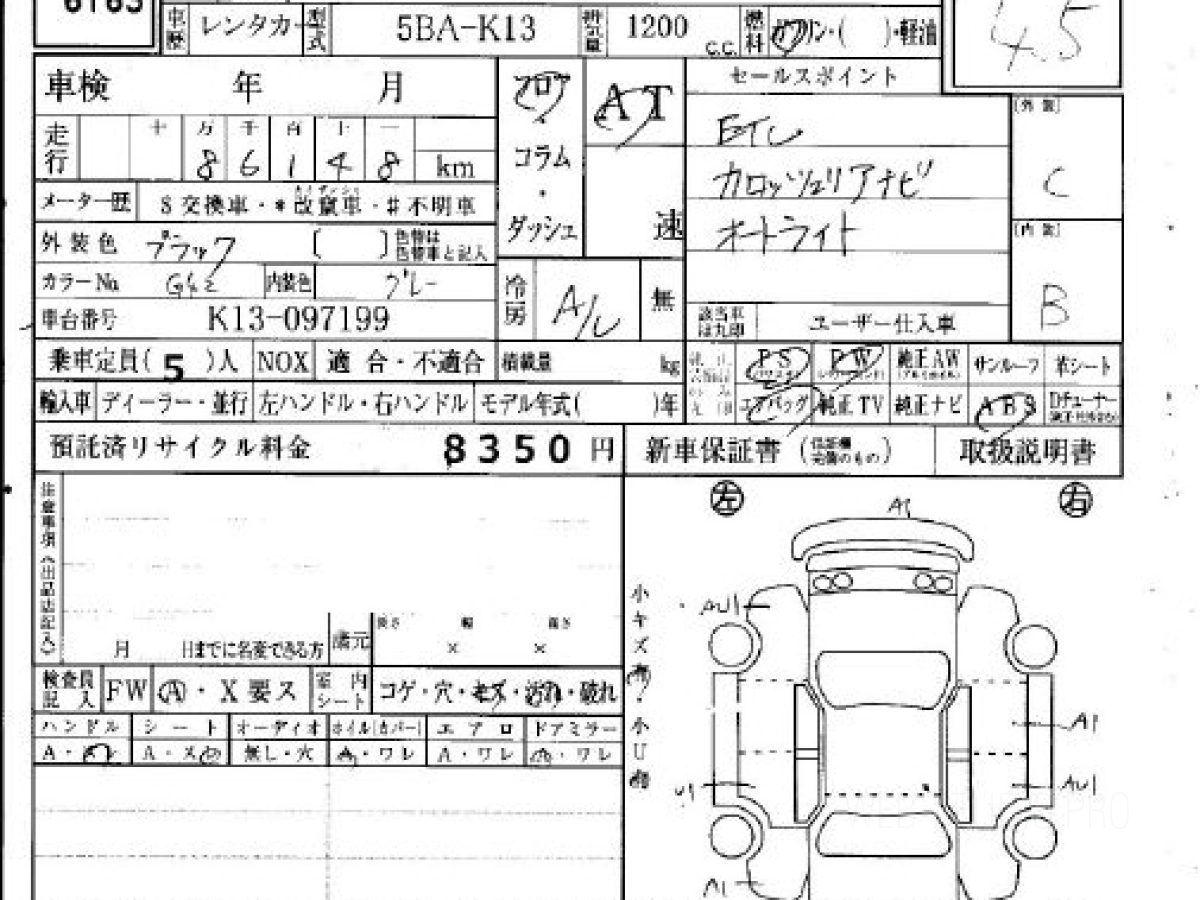 6165
車歴 レンタカー 型式 5BA-K13 排気量 1200 c.c. 燃料 ガソリン・( )・軽油
4.5
車検 年 月 フロア・コラム・ダッシュ AT 速
セールスポイント
ETC
カロッツェリアナビ
オートライト
[外装] C
[内装] B
走行 十 万 千 百 十 一
8 6 1 4 8 km
メーター歴 $交換車・*改竄車・#不明車
外装色 ブラック [ ] 色替は色替車と記入
カラーNo 内装色 グレー
冷房 A/C 無
車台番号 K13-097199
該当車は丸印 ユーザー仕入車
乗車定員( 5 )人 NOX 適合・不適合 積載量 kg
PS PW 純正AW サンルーフ 革シート
輸入車 ディーラー・並行 左ハンドル・右ハンドル モデル年式( )年
エアバッグ 純正TV 純正ナビ ABS Dチューナー
預託済リサイクル料金 8350 円 新車保証書 取扱説明書
注意事項(出品店記入)
月 日までに名変できる方 諸元 長さ 幅 高さ
× ×
検査員記入 FW A・X要ス 室内シート コゲ・穴・キズ・汚れ・破れ
ハンドル シート オーディオ ホイル(カバー) エアロ ドアミラー
A・ A・ス 無し・穴 A・ワレ A・ワレ A・ワレ
左 右
小キズ有・小U有
A1
AU1
A1
U1
AU1
A1